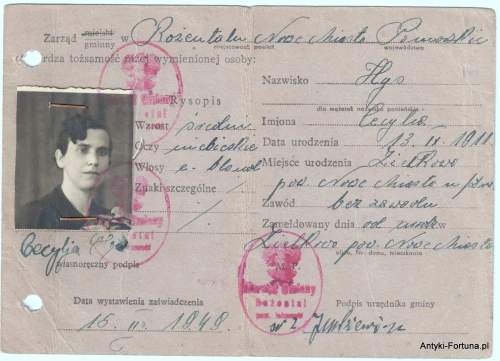 Zarząd miejski gminny w Rożentalu Nowe Miasto Pomorskie
miejscowość, powiat województwo
twierdza tożsamość niżej wymienionej osoby:
Rysopis
Wzrost średni
Oczy niebieskie
Włosy c. blond
Znaki szczególne
Cecylja Hys
własnoręczny podpis
Data wystawienia zaświadczenia
15 1948
Nazwisko Hys
dla mężatek nazwisko panieńskie
Imiona Cecylia
Data urodzenia 13. II. 1911
Miejsce urodzenia
pow. Nowe Miasto
Zawód bez zawodu
Zameldowany dnia od urodz.
pow. Nowe Miasto
ulica, nr. domu, mieszkania
M. P.
Zarząd Gminy
Rożental
Podpis urzędnika gminy
Antyki-Fortuna.pl